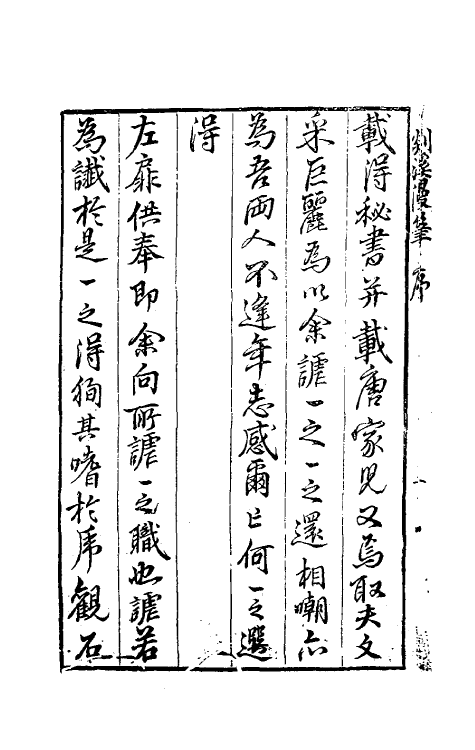 剡溪漫筆 序
載得秘書并載唐家兒又焉取夫文
采巨麗為以余謔一之一之還相嘲亦
為吾兩人不逢年志感爾已何一之選
得
左雍供奉即余向所謔一之職也謔若
為讖於是一之得徇其嗜於虎觀石